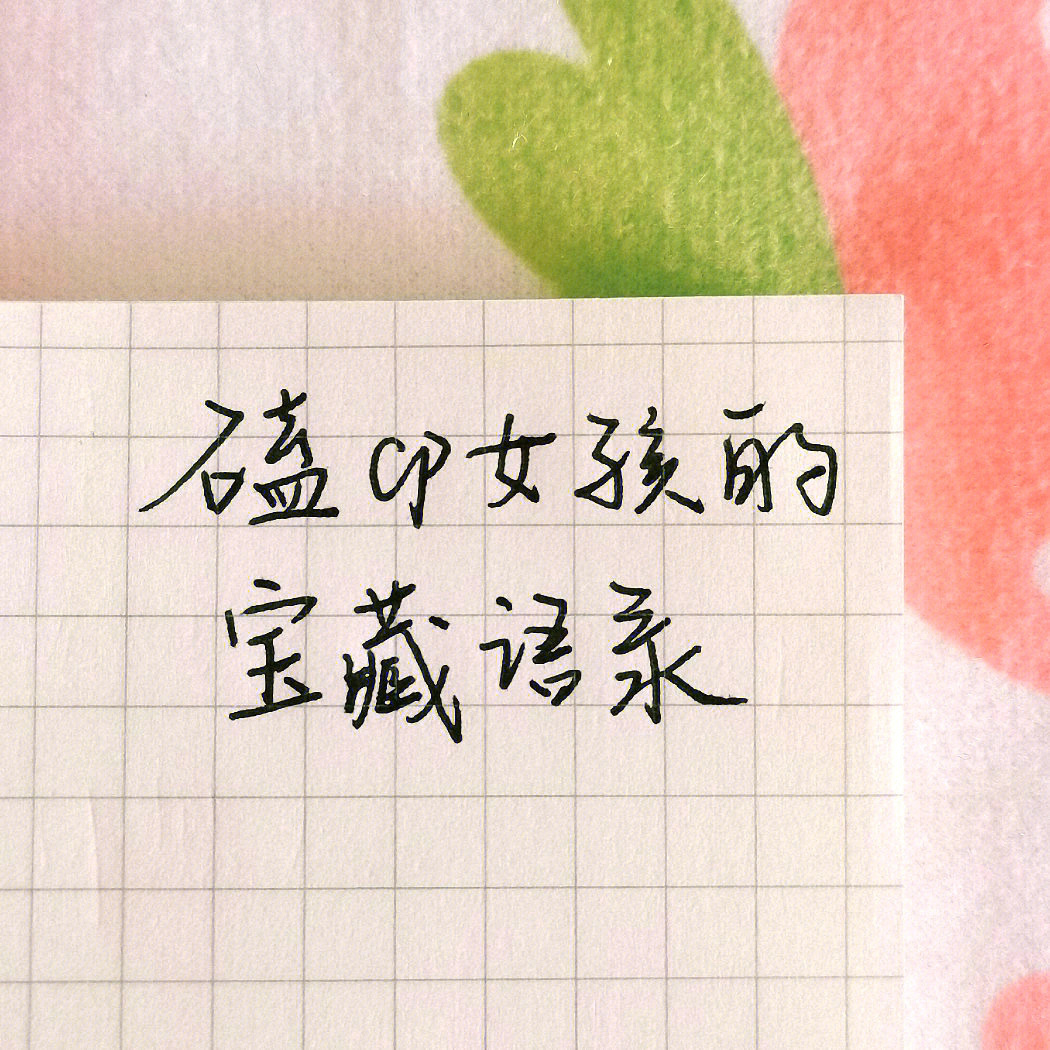 磕CP女孩的
宝藏语录